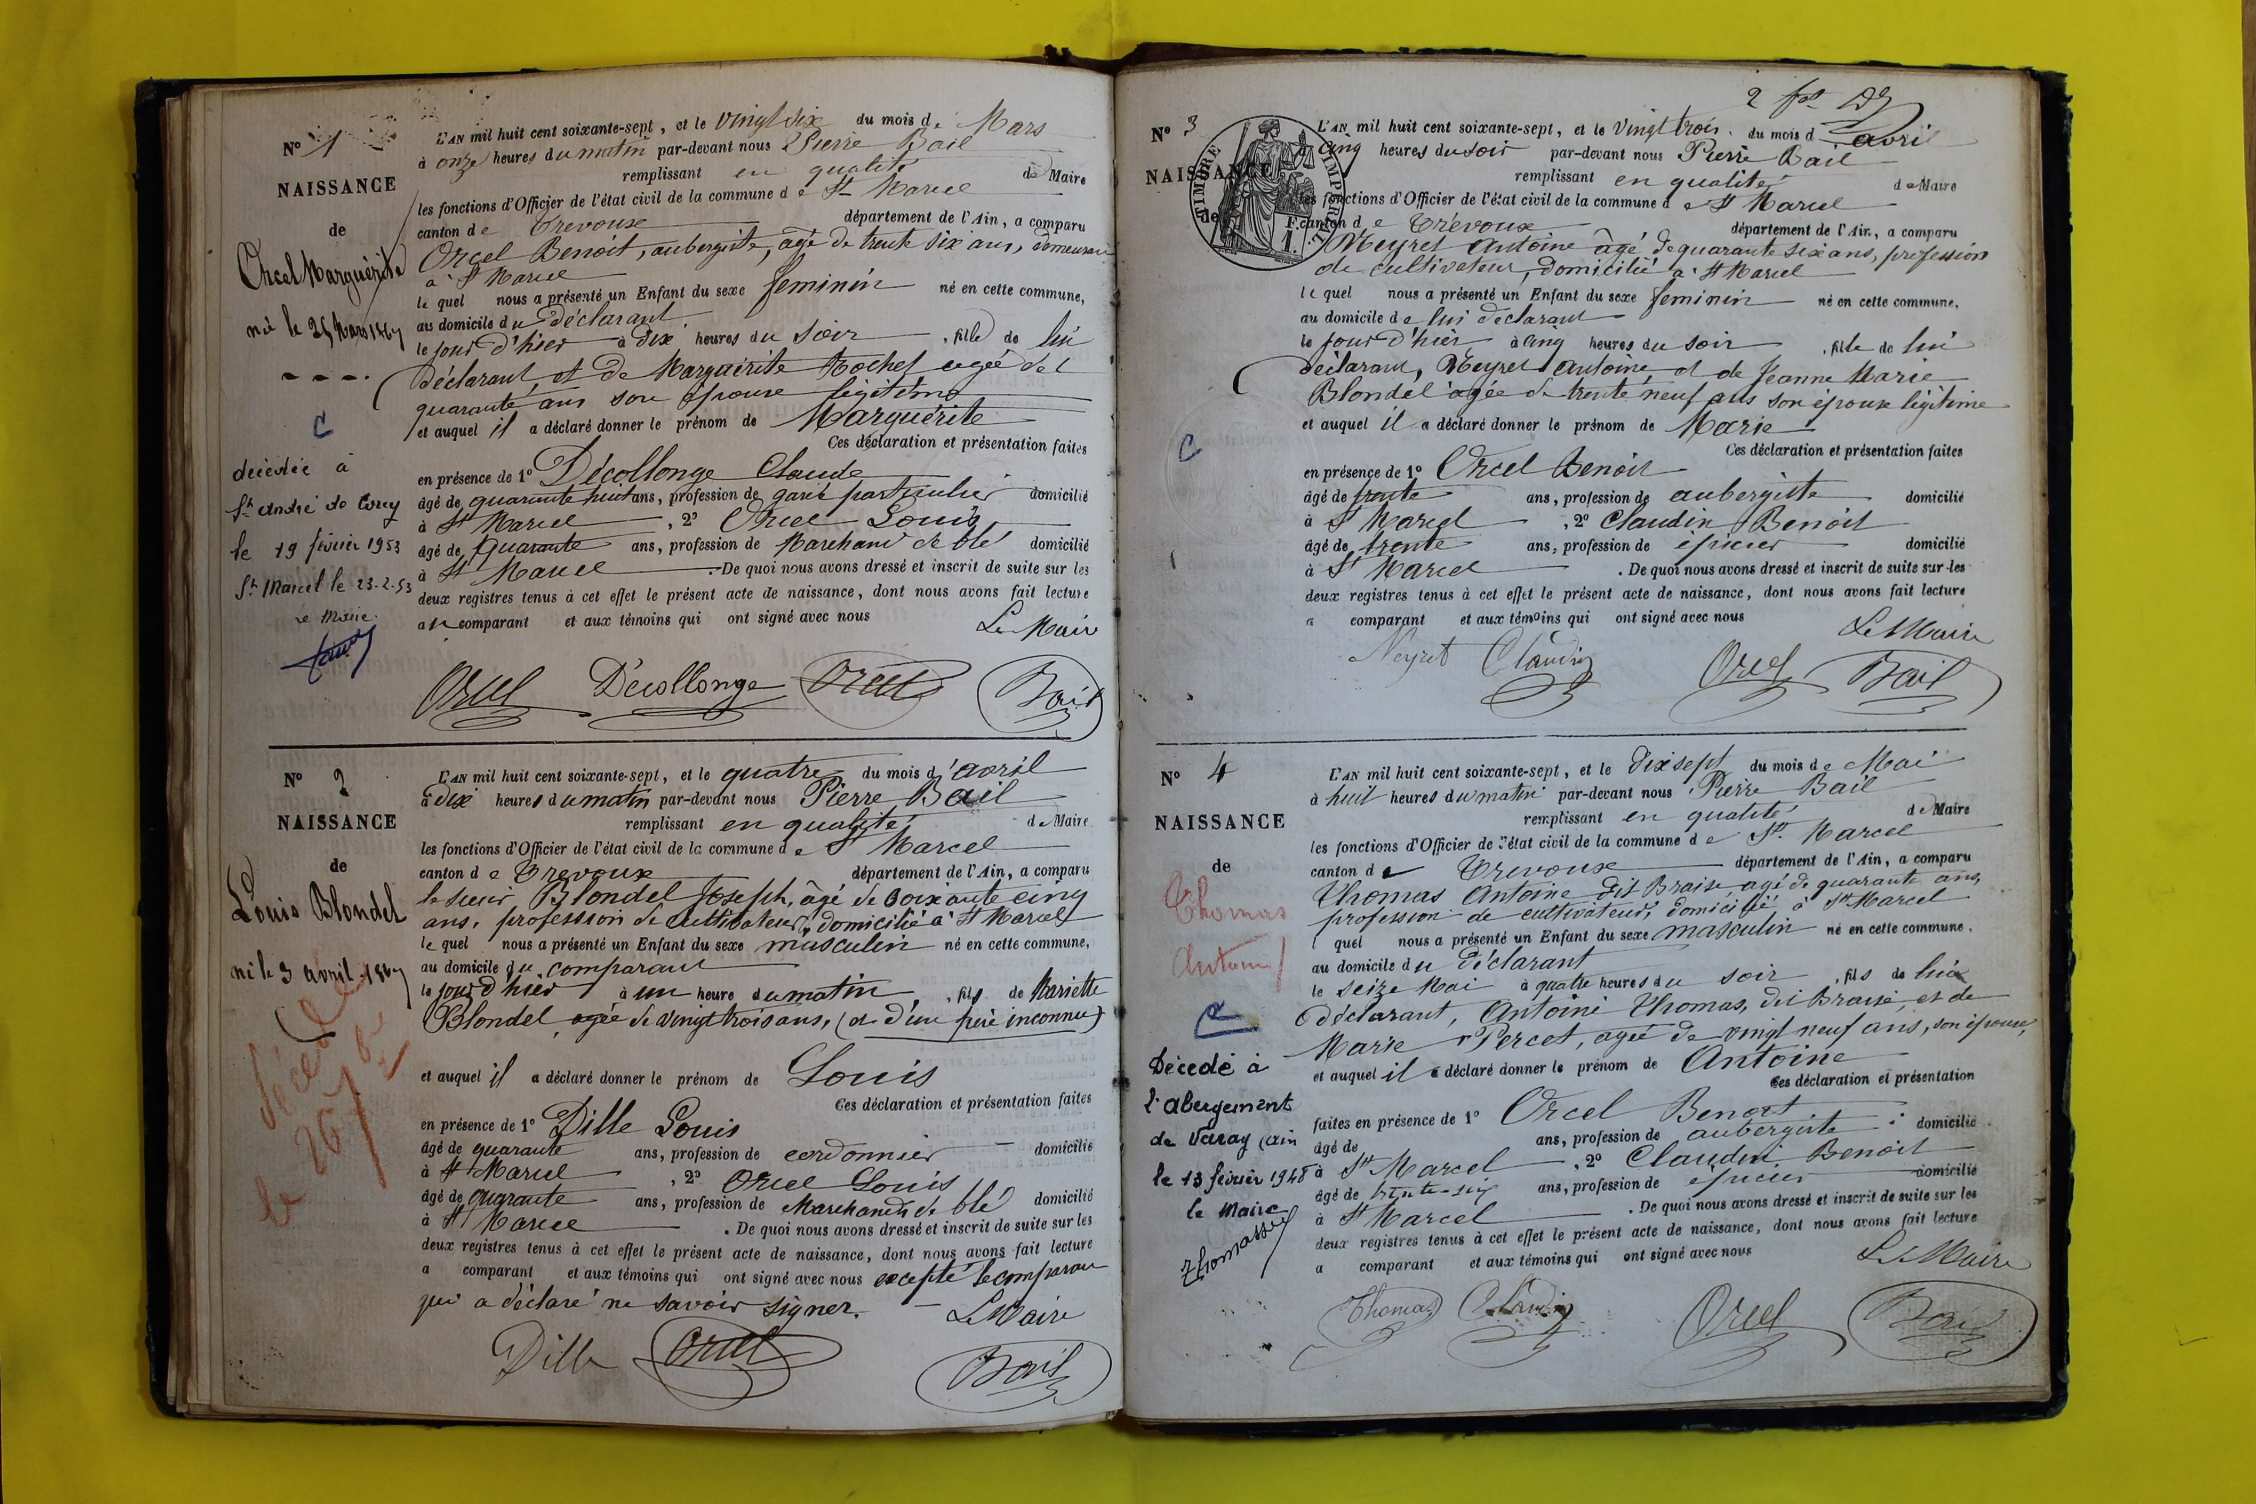 N° 1
NAISSANCE
de
Orcel Marguérite
né le 25 Mars 1867
C
décédée à
St André de Corcy
le 19 février 1953
St Marcel le 23-2-53
le Maire
L'AN mil huit cent soixante-sept, et le vingt six du mois de Mars
à onze heures du matin par-devant nous Pierre Bail
remplissant en qualité de Maire
les fonctions d'Officier de l'état civil de la commune de St Marcel
canton de Trevoux département de l'Ain, a comparu
Orcel Benoit, aubergiste, agé de trente six ans, demeurant
à St Marcel
le quel nous a présenté un Enfant du sexe feminin né en cette commune,
au domicile du déclarant
le jour d'hier à dix heures du soir, fille de lui
déclarant, et de Marguérite Rochet agée de
quarante ans son épouse légitime
et auquel il a déclaré donner le prénom de Marguérite
Ces déclaration et présentation faites
en présence de 1° Décollonge Claude
âgé de quarante huit ans, profession de garde particulier domicilié
à St Marcel, 2° Orcel Louis
âgé de quarante ans, profession de Marchand de blé domicilié
à St Marcel. De quoi nous avons dressé et inscrit de suite sur les
deux registres tenus à cet effet le présent acte de naissance, dont nous avons fait lecture
au comparant et aux témoins qui ont signé avec nous
Le Maire
Orcel Décollonge Orcel Bail
N° 2
NAISSANCE
de
Louis Blondel
né le 3 avril 1867
décédé
le 26
L'AN mil huit cent soixante-sept, et le quatre du mois d'avril
à dix heures du matin par-devant nous Pierre Bail
remplissant en qualité de Maire
les fonctions d'Officier de l'état civil de la commune de St Marcel
canton de Trevoux département de l'Ain, a comparu
le sieur Blondel Joseph, âgé de soixante cinq
ans, profession de cultivateur, domicilié à St Marcel
le quel nous a présenté un Enfant du sexe masculin né en cette commune,
au domicile du comparant
le jour d'hier à un heure du matin, fils de Mariette
Blondel agée de vingt trois ans, (et d'un père inconnu)
et auquel il a déclaré donner le prénom de Louis
Ces déclaration et présentation faites
en présence de 1° Dille Louis
âgé de quarante ans, profession de cordonnier domicilié
à St Marcel, 2° Orcel Louis
âgé de quarante ans, profession de Marchand de blé domicilié
à St Marcel. De quoi nous avons dressé et inscrit de suite sur les
deux registres tenus à cet effet le présent acte de naissance, dont nous avons fait lecture
a comparant et aux témoins qui ont signé avec nous excepté le comparant
qui a déclaré ne savoir signer. Le Maire
Dille Orcel Bail
2 fos
N° 3
NAISSANCE
de
TIMBRE IMPERIAL
1 F.
C
L'AN mil huit cent soixante-sept, et le vingt trois du mois d'avril
à cinq heures du soir par-devant nous Pierre Bail
remplissant en qualité de Maire
les fonctions d'Officier de l'état civil de la commune de St Marcel
canton de Trévoux département de l'Ain, a comparu
Neyret Antoine âgé de quarante six ans, profession
de cultivateur, domicilié à St Marcel
le quel nous a présenté un Enfant du sexe feminin né en cette commune,
au domicile de lui déclarant
le jour d'hier à cinq heures du soir, fille de lui
déclarant, Neyret Antoine et de Jeanne Marie
Blondel agée de trente neuf ans son épouse légitime
et auquel il a déclaré donner le prénom de Marie
Ces déclaration et présentation faites
en présence de 1° Orcel Benoit
âgé de trente ans, profession de aubergiste domicilié
à St Marcel, 2° Claudin Benoit
âgé de trente ans, profession de épicier domicilié
à St Marcel. De quoi nous avons dressé et inscrit de suite sur les
deux registres tenus à cet effet le présent acte de naissance, dont nous avons fait lecture
a comparant et aux témoins qui ont signé avec nous
Le Maire
Neyret Claudin Orcel Bail
N° 4
NAISSANCE
de
Thomas
Antoine
C
Décédé à
l'Abergement
de Varay (Ain
le 13 février 1948
le Maire
Thomassin
L'AN mil huit cent soixante-sept, et le dix sept du mois de Mai
à huit heures du matin par-devant nous Pierre Bail
remplissant en qualité de Maire
les fonctions d'Officier de l'état civil de la commune de St Marcel
canton de Trevoux département de l'Ain, a comparu
Thomas Antoine dit Braise agé de quarante ans,
profession de cultivateur, domicilié à St Marcel
quel nous a présenté un Enfant du sexe masculin né en cette commune,
au domicile du déclarant
le seize Mai à quatre heures du soir, fils de lui
déclarant, Antoine Thomas, dit Braise, et de
Marie Percet, agée de vingt neuf ans, son épouse,
et auquel il a déclaré donner le prénom de Antoine
Ces déclaration et présentation
faites en présence de 1° Orcel Benoit
âgé de ans, profession de aubergiste domicilié
à St Marcel, 2° Claudin Benoit
âgé de trente-six ans, profession de épicier domicilié
à St Marcel. De quoi nous avons dressé et inscrit de suite sur les
deux registres tenus à cet effet le présent acte de naissance, dont nous avons fait lecture
a comparant et aux témoins qui ont signé avec nous
Le Maire
Thomas Claudin Orcel Bail